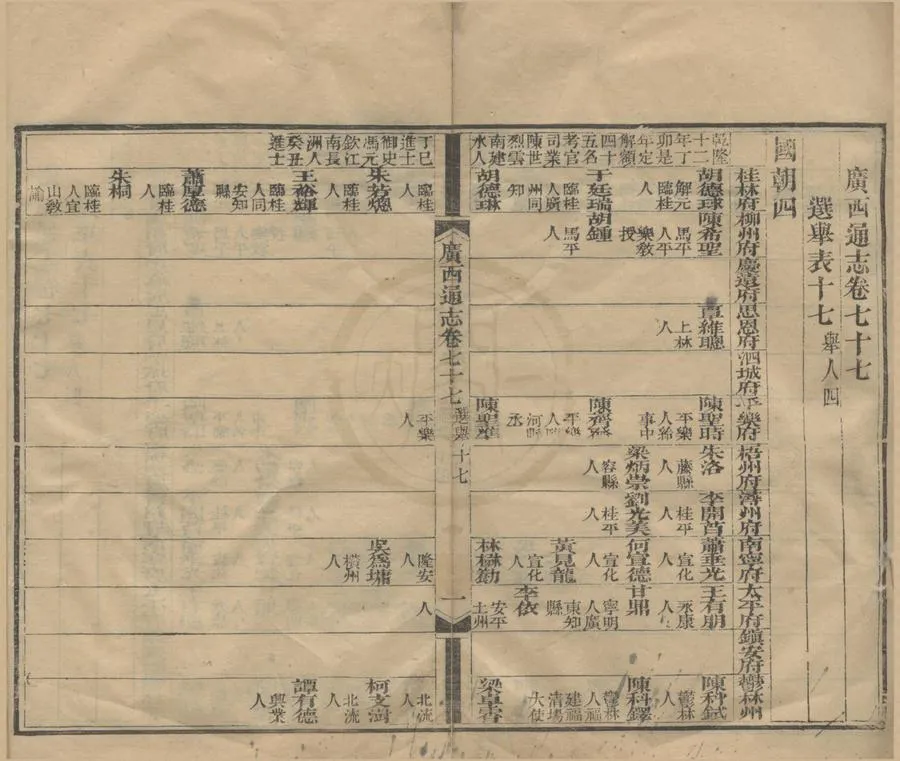 廣西通志卷七十七
選舉表十七 舉人四
國朝四
桂林府
柳州府
慶遠府
思恩府
泗城府
平樂府
梧州府
潯州府
南寧府
太平府
鎮安府
鬱林州
乾隆十二年丁卯是年定解額四十五名
考官司業陳世烈雲南建水人
丁巳進士
御史馮元欽江南長洲人
癸丑進士
胡德球 解元臨桂人
于廷瑞 臨桂人廣州同知
胡德琳 臨桂人
朱若炳 臨桂人
王裕輝 臨桂人同安知縣
蕭厚德 臨桂人
朱桐 臨桂人宜山教諭
陳希聖 馬平人平樂教授
胡鍾 馬平人
覃維聰 上林人
陳聖時 平樂人給事中
陳齊 平樂人河丞
陳聖 平樂人
朱洛 藤縣人
梁炳崇 容縣人
李開首 桂平人
劉光美 桂平人
蕭垂光 宣化人
何宣德 宣化人
黃見龍 宣化人
林楙勛 隆安人
吳為墉 橫州人
王有朋 永康人
甘鼎 寧明人廣東知縣
李依 安平土州人
陳科鋱 鬱林人
陳科鐸 鬱林人福建福清場大使
梁卓書 北流人
柯支澍 北流人
譚有德 興業人
廣西通志卷七十七 選舉十七 一